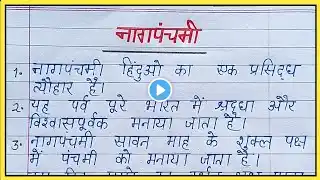 नागपंचमी
1. नागपंचमी हिंदुओ का एक प्रसिद्ध
त्यौहार है।
2. यह पर्व पूरे भारत में श्रद्धा और
विश्वासपूर्वक मनाया जाता है।
3. नागपंचमी सावन माह के शुक्ल पक्ष
में पंचमी को मनाया जाता है।